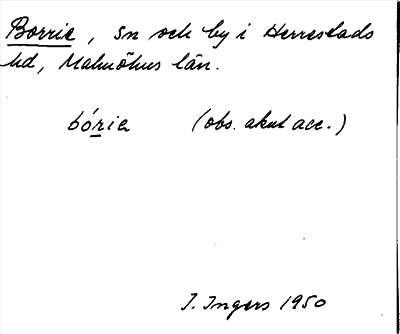 Borrie, sn och by i Herrestads
hd, Malmöhus län.
bórie (obs. akut acc.)
I. Ingers 1950